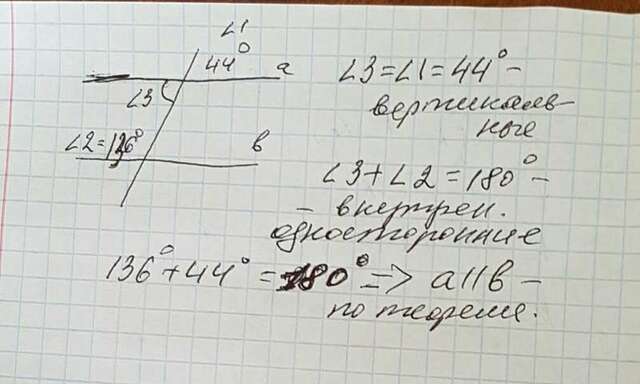 ∠1
44° a
∠3
∠2=136° в
∠3=∠1=44° –
вертикаль-
ные
∠3+∠2=180° –
– внутрен.
односторонние
136°+44°=180° => a||в –
по теореме.